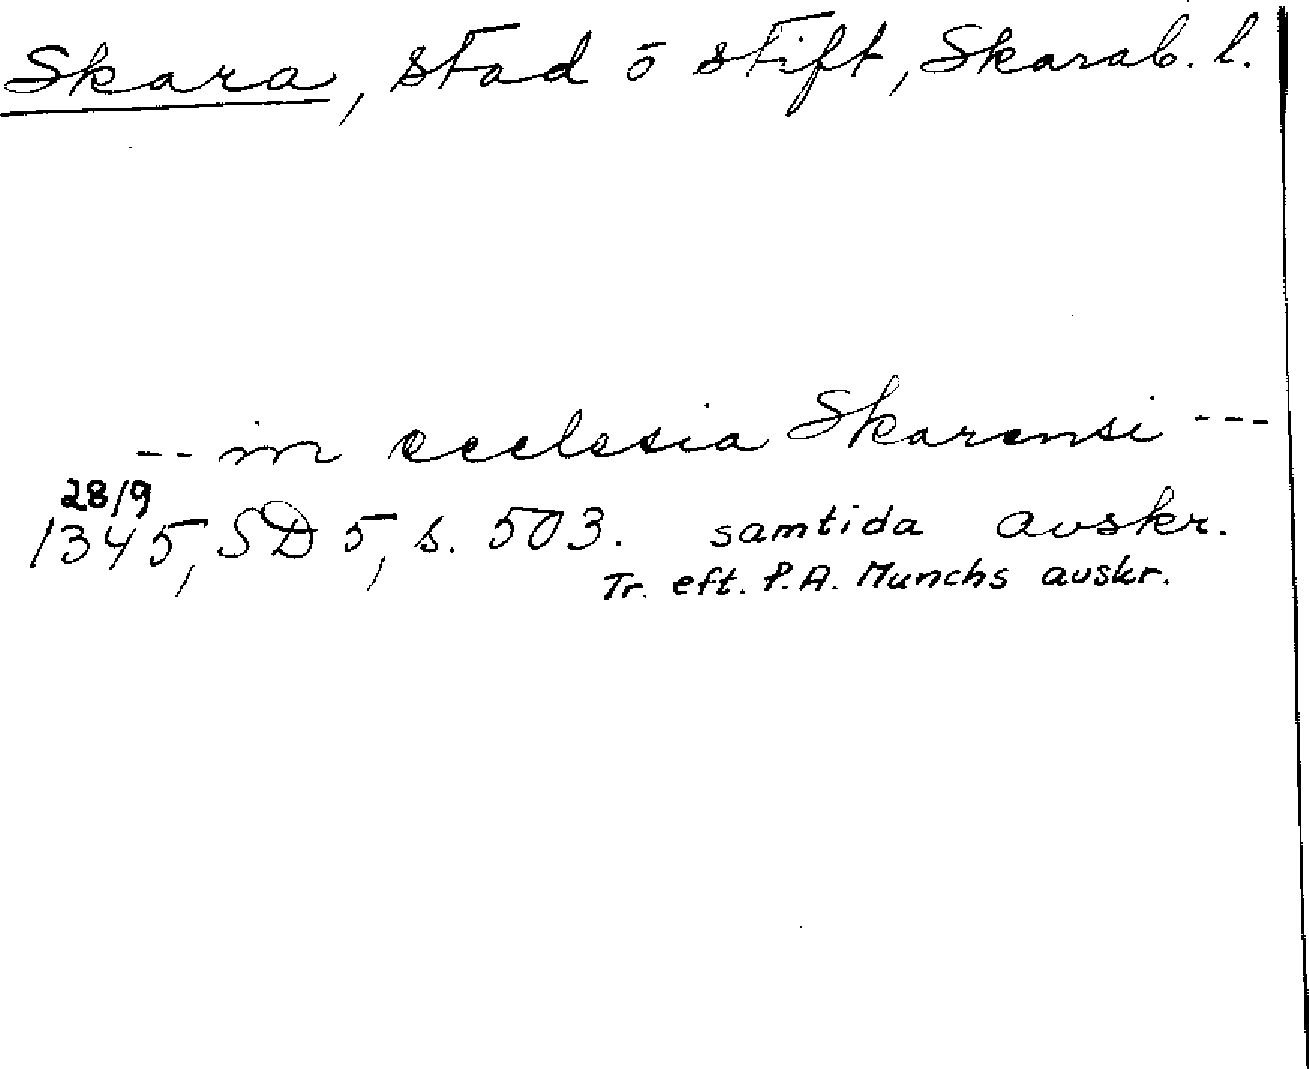 Skara, stad o stift, Skarab. l.
-- in ecclesia Skarensi ---
28/9
1345, SD 5, s. 503. samtida avskr.
Tr. eft. P.A. Munchs avskr.